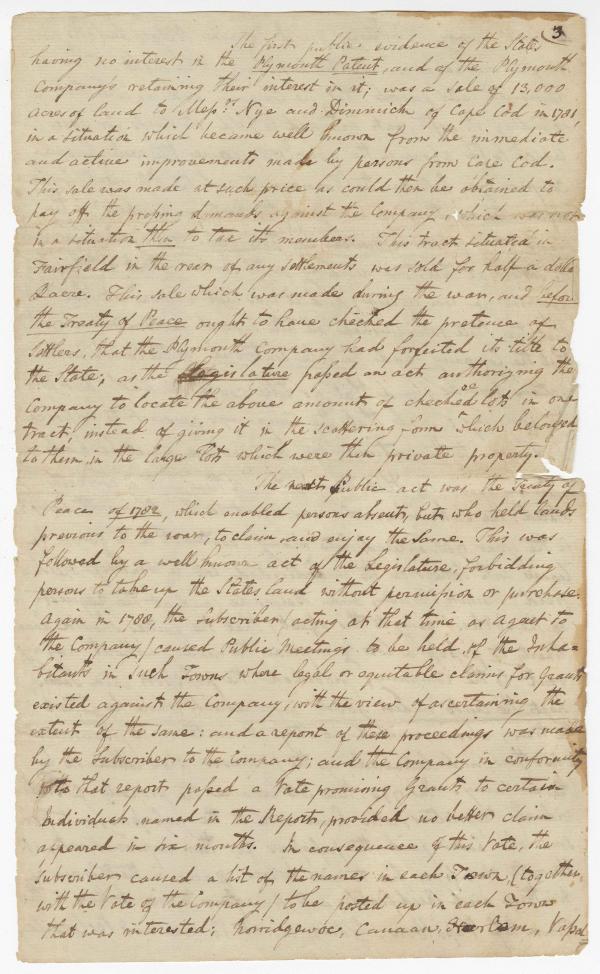 3
The first public evidence of the States
having no interest in the Plymouth Patent, and of the Plymouth
Company's retaining their interest in it; was a Sale of 13,000
acres of land to Messrs. Nye and Dimmick of Cape Cod in 1781,
in a situation which became well known from the immediate
and active improvements made by persons from Cape Cod.
This sale was made at such price as could then be obtained to
pay off the pressing demands against the Company, which was not
in a situation then to tax its members. This tract situated in
Fairfield in the rear of any settlements was sold for half a dolla
an acre. This sale which was made during the war, and before
the Treaty of Peace ought to have checked the pretence of
Settlers, that the Plymouth Company had forfeited its title to
the State; as the Legislature passed an act authorizing the
Company to locate the above amount of checked lots in one
tract, instead of giving it in the scattering form which belonged
to them, in the large lots which were then private property.
The next Public act was the Treaty of
Peace of 1782, which enabled persons absent, but who held lands
previous to the war, to claim and enjoy the same. This was
followed by a well known act of the Legislature, forbidding
persons to take up the States land without permission or purchase.
Again in 1788, the Subscriber (acting at that time as Agent to
the Company) caused Public Meetings to be held of the Inha-
bitants in Such Towns where legal or equitable claims for Grants
existed against the Company, with the view of ascertaining the
extent of the same: and a report of these proceedings was made
by the Subscriber to the Company; and the Company in conformity
to that report passed a Vote promising Grants to certain
Individuals named in the Report, provided no better claim
appeared in six months. In consequence of this Vote, the
Subscriber caused a list of the names in each Town, (together
with the Vote of the Company) to be posted up in each Town
that was interested; Norridgewoc, Canaan, Harlem, Vassal